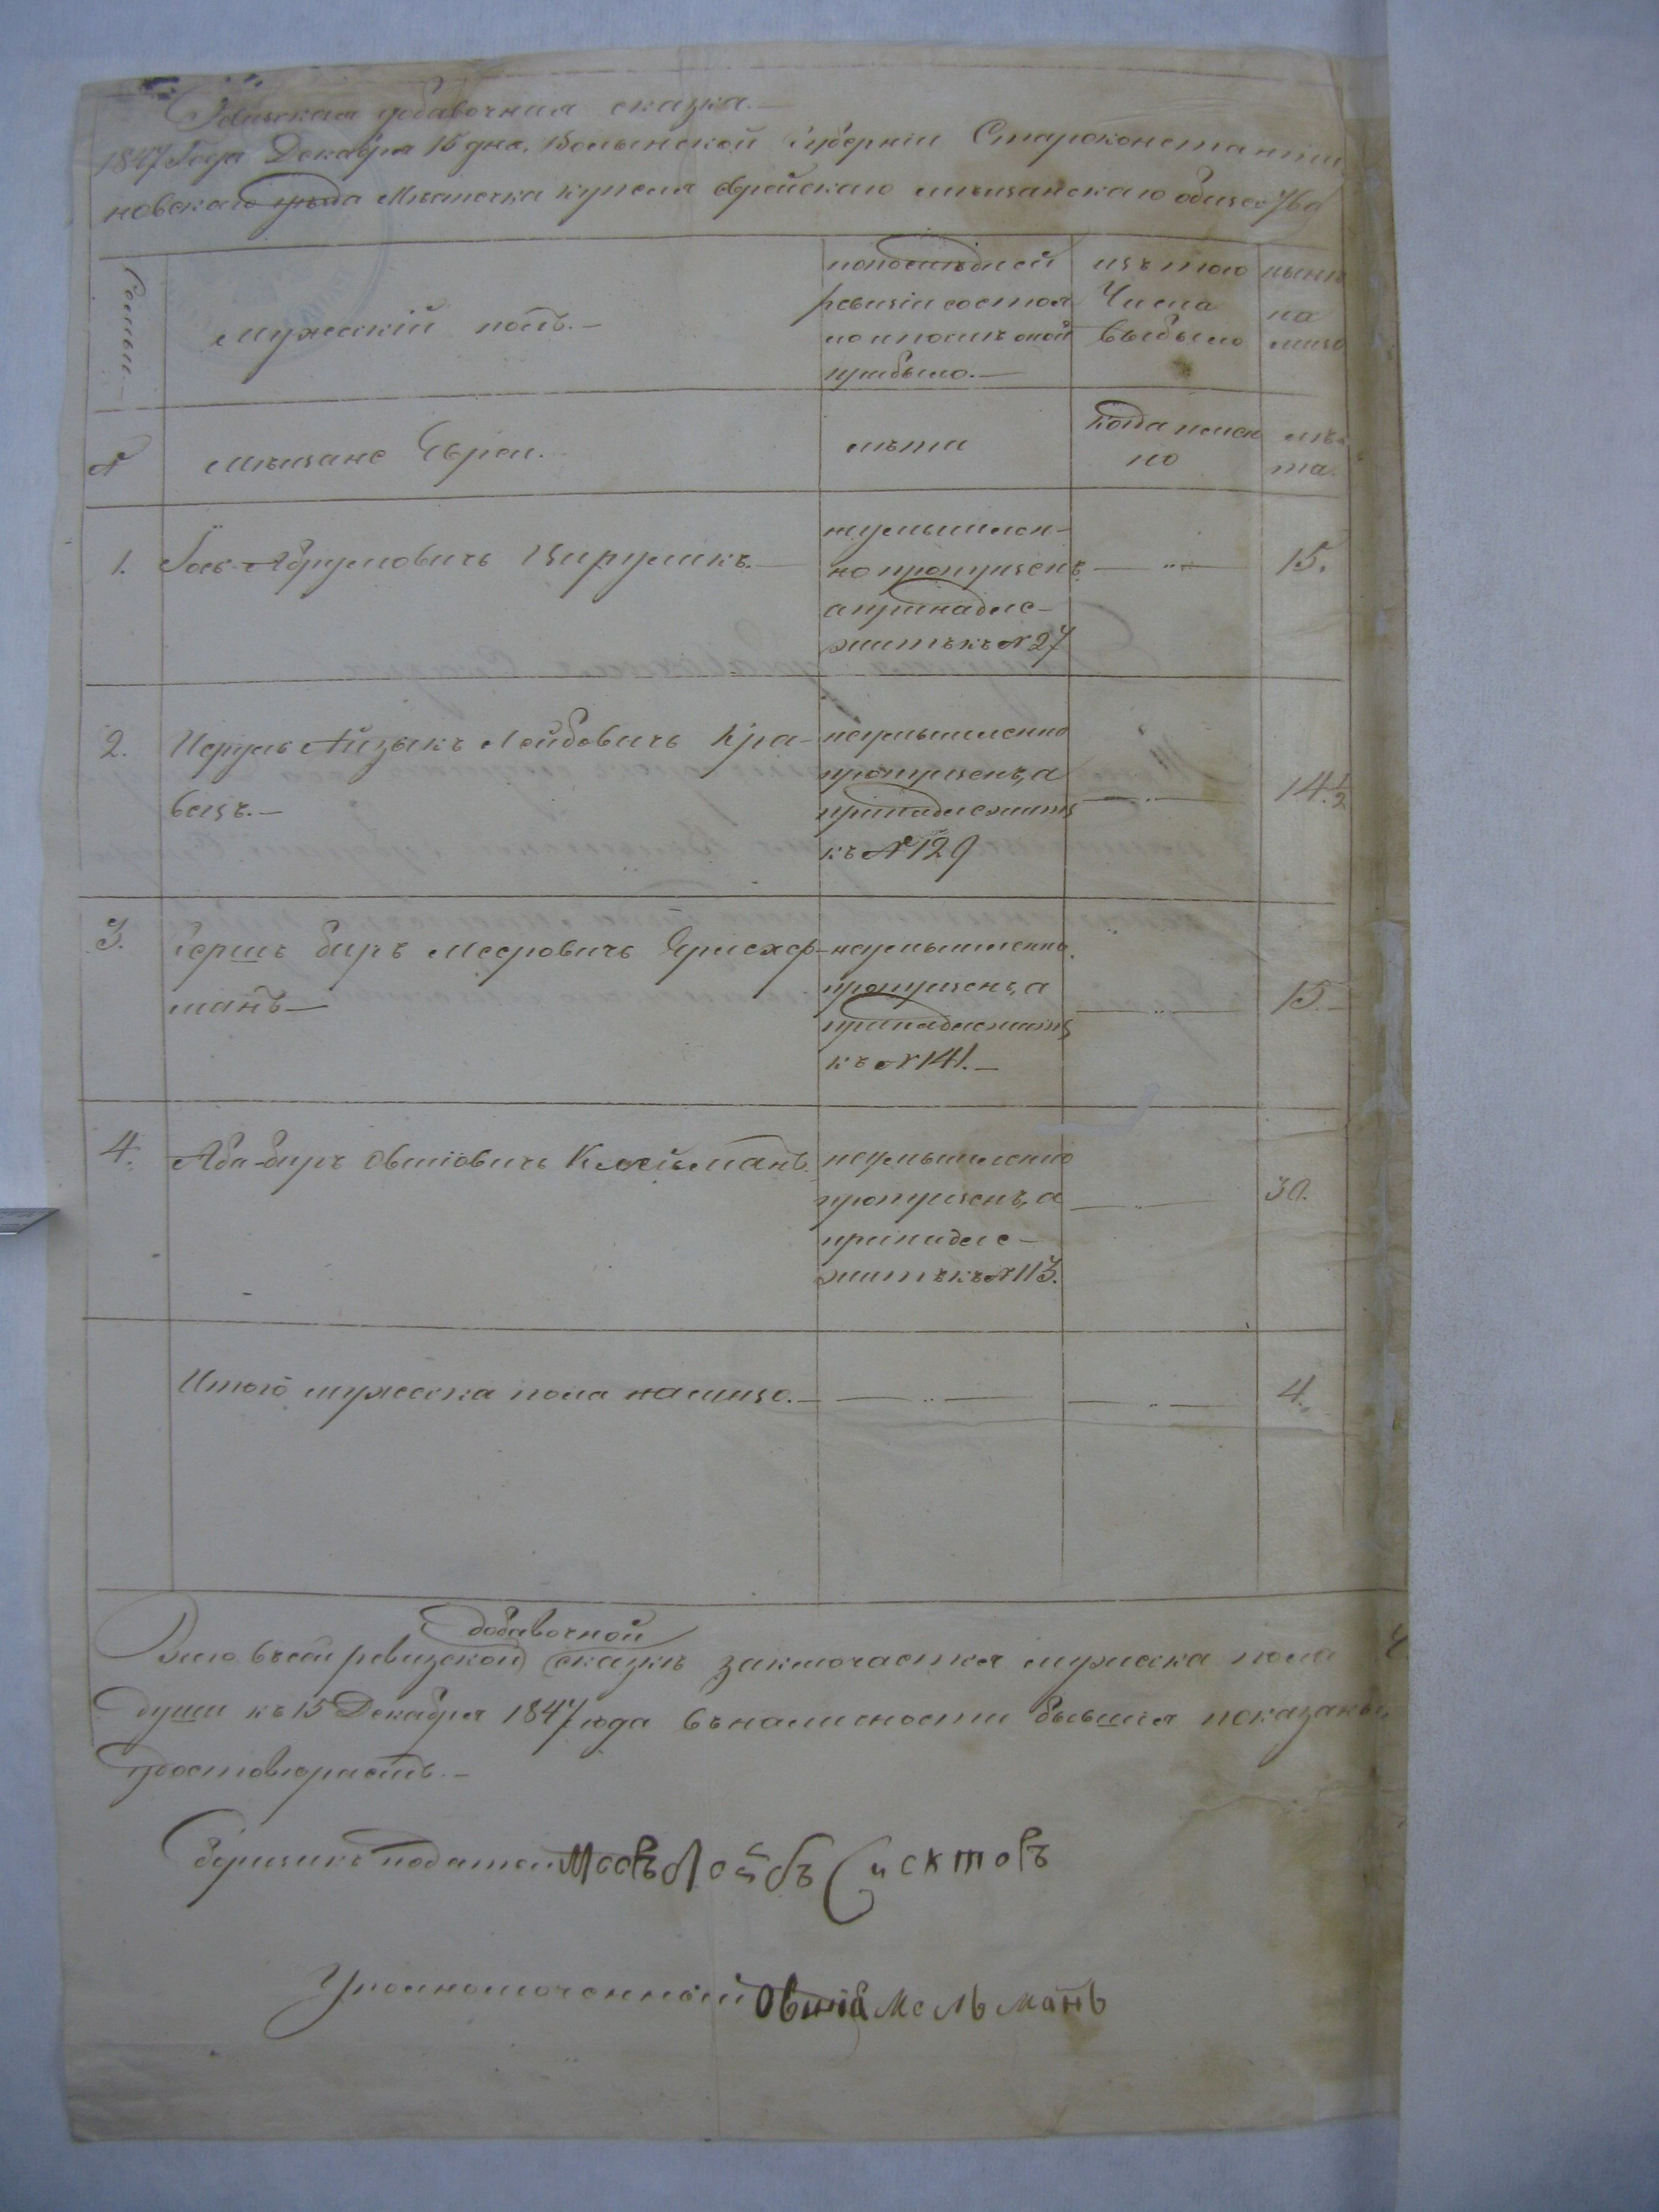 Ревизская добавочная сказка.—
1847 Года Декабря 15 дня. Волынской Губернии Староконстанти
новского уезда Местечка Купеля еврейскаго мещанскаго общества
Семьи—
Мужеский полъ.—
по последней
ревизіи состоя
ло и после оной
прибыло.—
изъ того
Числа
выбыло
ныне
на
лицо
№
мещане Евреи.
лета
Когда имен
но
ле-
та.
1.
Іось Абрумовичъ Цируликъ.—
неумышлен-
но пропущенъ
а принадле-
житъ къ № 27
— „ —
15.
2.
Исруль Айзыкъ Лейбовичъ Кра-
вецъ.—
неумышленно
пропущенъ, а
принадлежитъ
къ № 129
— „ —
14 1/2
3.
Гершъ Беръ Мееровичъ
манъ—
неумышленно
пропущенъ, а
принадлежитъ
къ № 141.—
— „ —
15.—
4.
Аба-беръ Овшіовичъ Клейманъ.
неумышленно
пропущенъ, а
принадле-
житъ къ № 113.
— „ —
30.
Итого мужеска пола налицо.—
— „ —
— „ —
4.
добавочной
Всего въ сей ревизской сказке заключается мужеска пола 4
души къ 15 Декабря 1847 года въ наличности бывшія показаны
достоверность.—
Сборщикъ податей Мосъ Лейбъ
Уполномоченный Овшіа Мельманъ